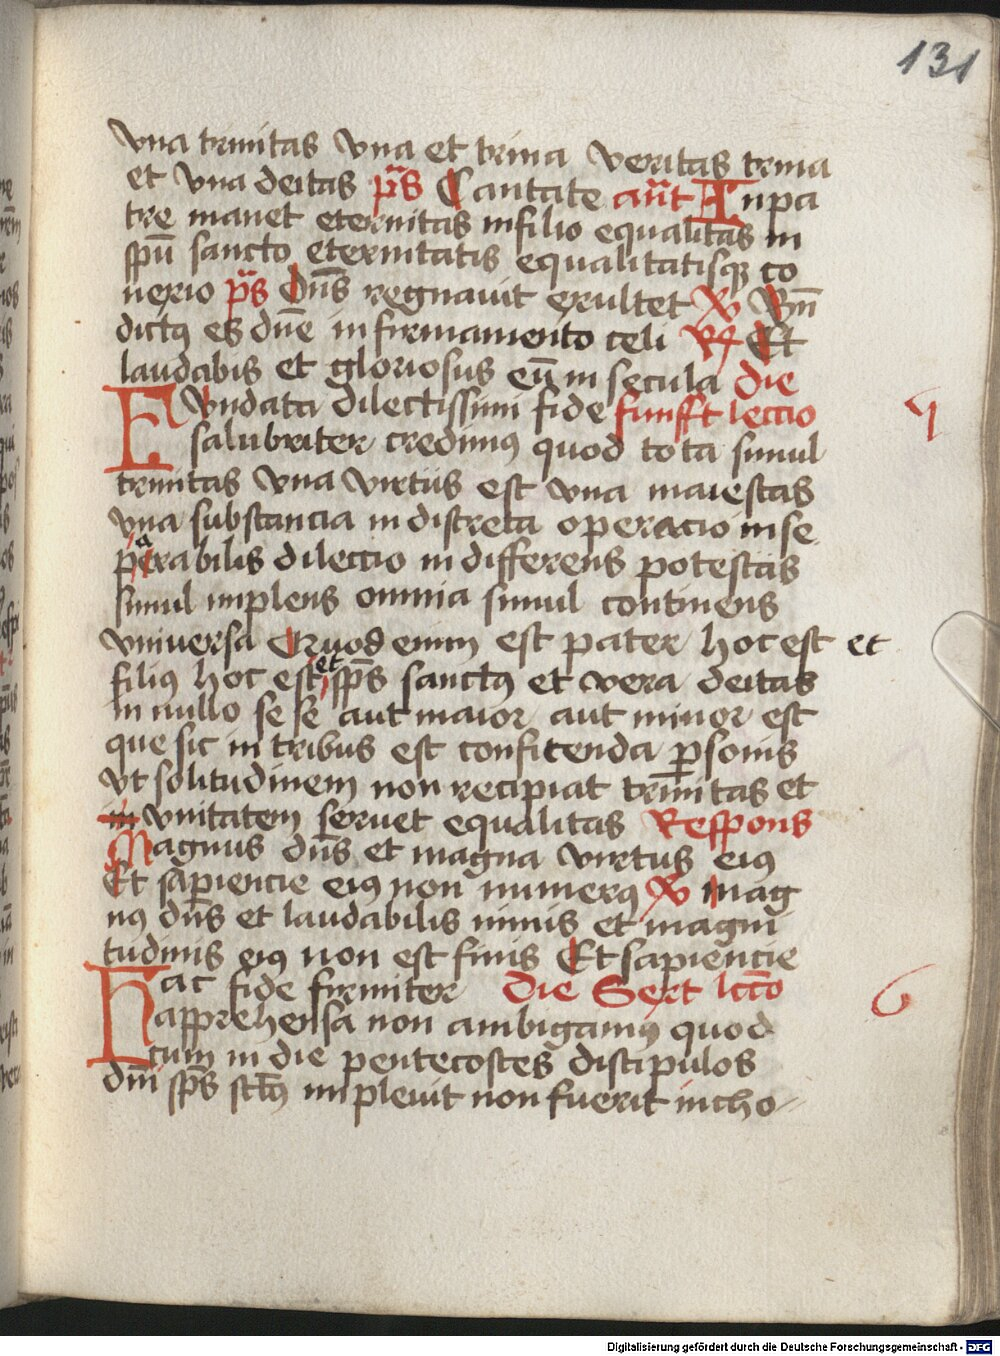 131
vna trinitas vna et trina veritas trina
et vna deitas p̄s Cantate ant̄ In pa
tre manet eternitas in filio equalitas in
spū sancto eternitatis equalitatisqꝫ co
nexio p̄s Dn̄s regnauit exultet ℣ Bn̄
dictꝯ es dn̄e in firmamento celi ℟ Et
laudabis et gloriosus eū in secula die
Fvndata dilectissimi fide funfft leccio
5
salubriter credimꝯ quod tota simul
trinitas vna virtus est vna maiestas
vna substancia in discreta operacio in se
perabilis dileccio in differens potestas
a
simul implens omnia simul continens
vniuersa Quod enim est pater hoc est et
filiꝯ hoc est et sps̄ sanctꝯ et vera deitas
in nullo se se aut maior aut minor est
que sic in tribus est confitenda ꝑsonis
vt solitudinem non recipiat trinitas et
in vnitatem seruet equalitas Respons
Magnus dn̄s et magna virtus eiꝯ
Et sapiencie eiꝯ non numerꝯ ℣ Mag
nꝯ dn̄s et laudabilis nimis et magni
tudinis eiꝯ non est finis Et sapiencie
Hac fide firmiter Die Sext lcc̄o
6
apprehensa non ambigamꝯ quod
cum in die pentecostes discipulos
dn̄i sps̄ sct̄ꝯ impleuit non fuerit incho